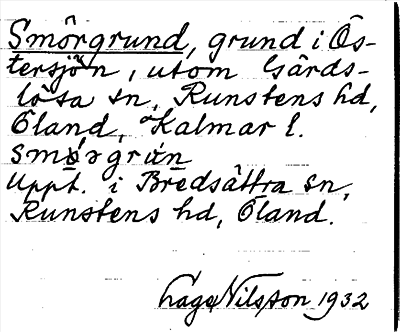 Smörgrund, grund i Ös-
tersjön, utom Gårds-
lösa sn, Runstens hd,
Öland, Kalmar l.
smø̀rgrùn
Uppt. i Bredsättra sn,
Runstens hd, Öland.
Lage Nilsson 1932